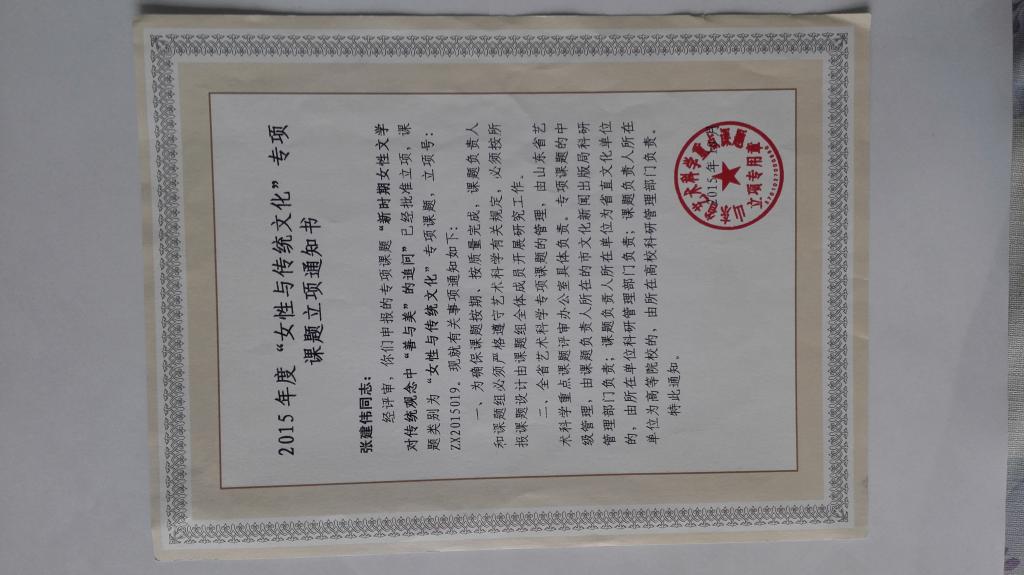 2015 年度“女性与传统文化”专项
课题立项通知书
张建伟同志：
经评审，你们申报的专项课题“新时期女性文学
对传统观念中“善与美”的追问”已经批准立项，课
题类别为“女性与传统文化”专项课题，立项号：
ZX2015019。现就有关事项通知如下：
一、为确保课题按期、按质量完成，课题负责人
和课题组必须严格遵守艺术科学有关规定，必须按所
报课题设计由课题组全体成员开展研究工作。
二、全省艺术科学专项课题的管理，由山东省艺
术科学重点课题评审办公室具体负责。专项课题的中
级管理，由课题负责人所在的市文化新闻出版局科研
管理部门负责；课题负责人所在单位为省直文化单位
的，由所在单位科研管理部门负责；课题负责人所在
单位为高等院校的，由所在高校科研管理部门负责。
特此通知。
山东省艺术科学重点课题
立项专用章
2015 年